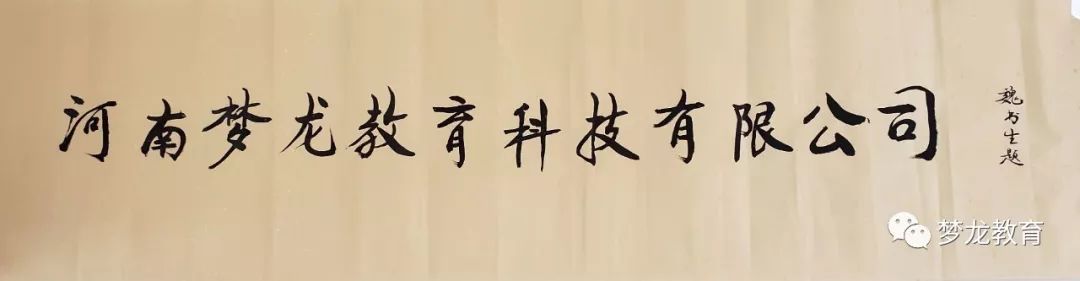 河南梦龙教育科技有限公司
魏书生题
梦龙教育